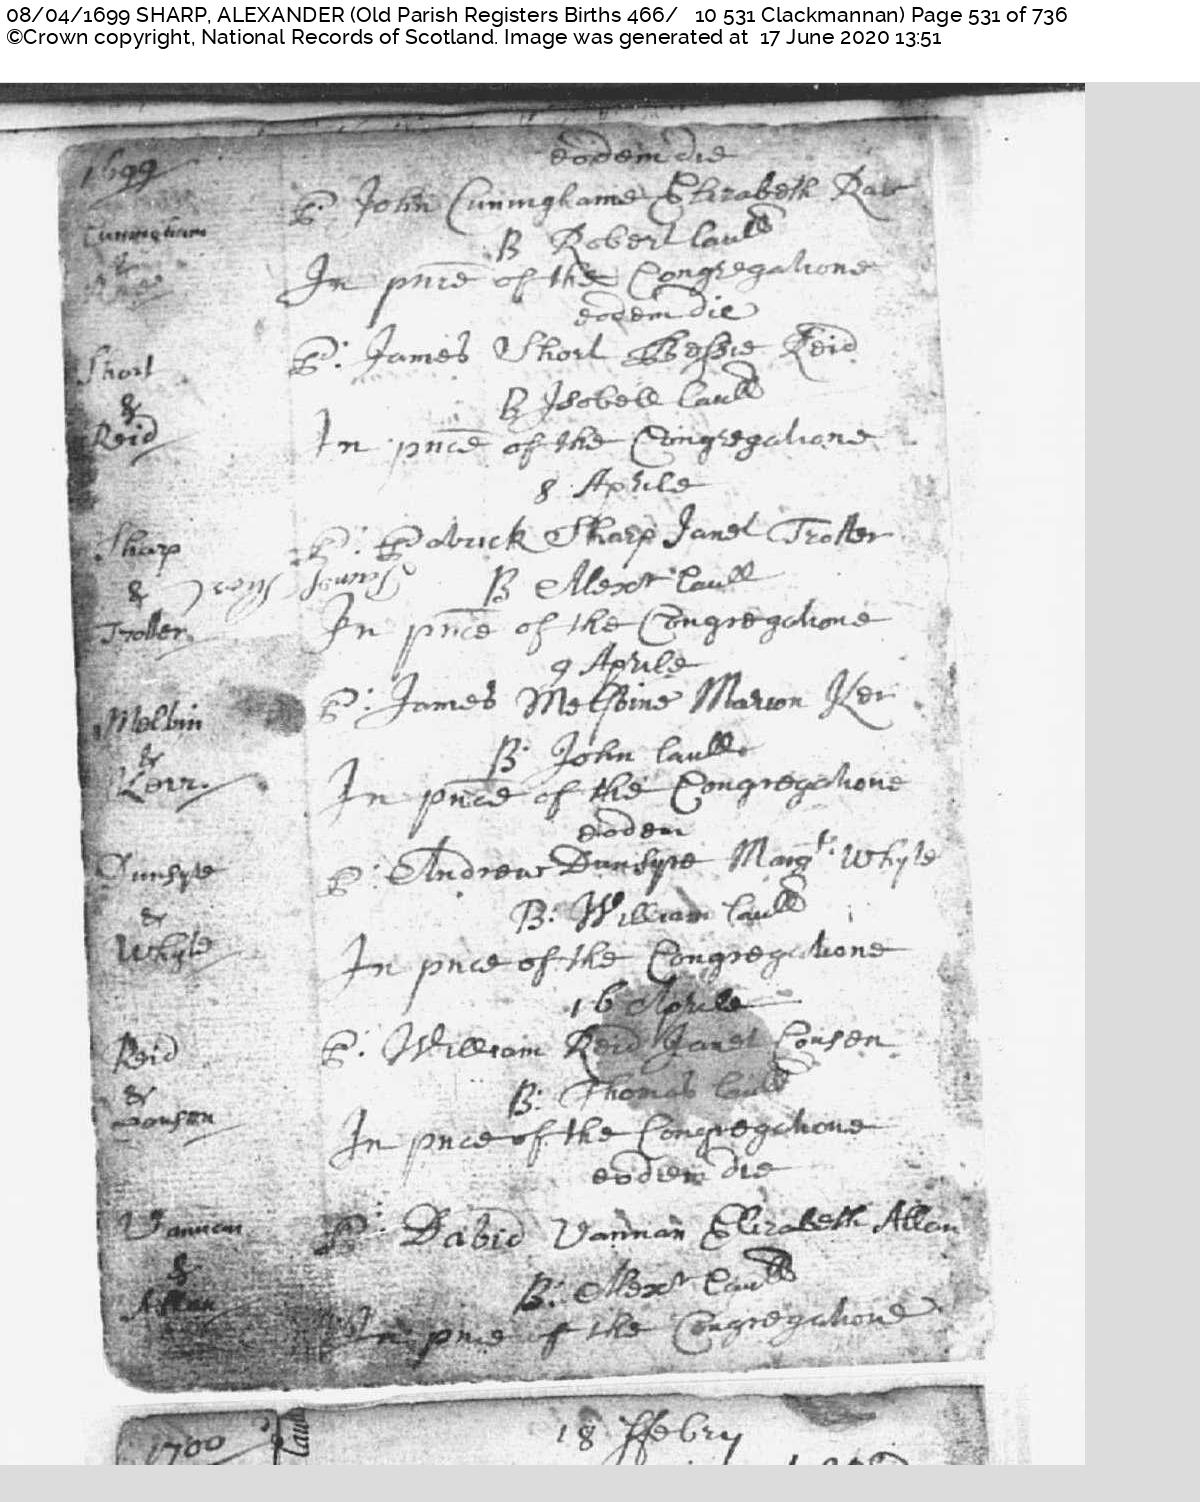 08/04/1699 SHARP, ALEXANDER (Old Parish Registers Births 466/ 10 531 Clackmannan) Page 531 of 736
©Crown copyright, National Records of Scotland. Image was generated at 17 June 2020 13:51
1699
eodem die
Cuningham
&
P: John Cuninghame Elizabeth
B Robert caull
In pnce of the Congregatione
eodem die
Short
&
Reid
P: James Short Bessie Reid
B Isobell caull
In pnce of the Congregatione
8 Aprile
Sharp
&
Trotter
P: Patrick Sharp Janet Trotter
B Alexr caull
In pnce of the Congregatione
9 Aprile
Melvin
&
Kerr
P: James Melvine Marion Ker
B: John caull
In pnce of the Congregatione
eodem
Dunsyre
&
Whyte
P: Andrew Dunsyre Margt: Whyte
B: William caull
In pnce of the Congregatione
16 Aprile
Reid
&
P: William Reid Janet
B: Thomas caull
In pnce of the Congregatione
eodem die
Vannan
&
Allan
P: David Vannan Elizabeth Allan
B: Alexr caull
In pnce of the Congregatione
1700
18 ffebry